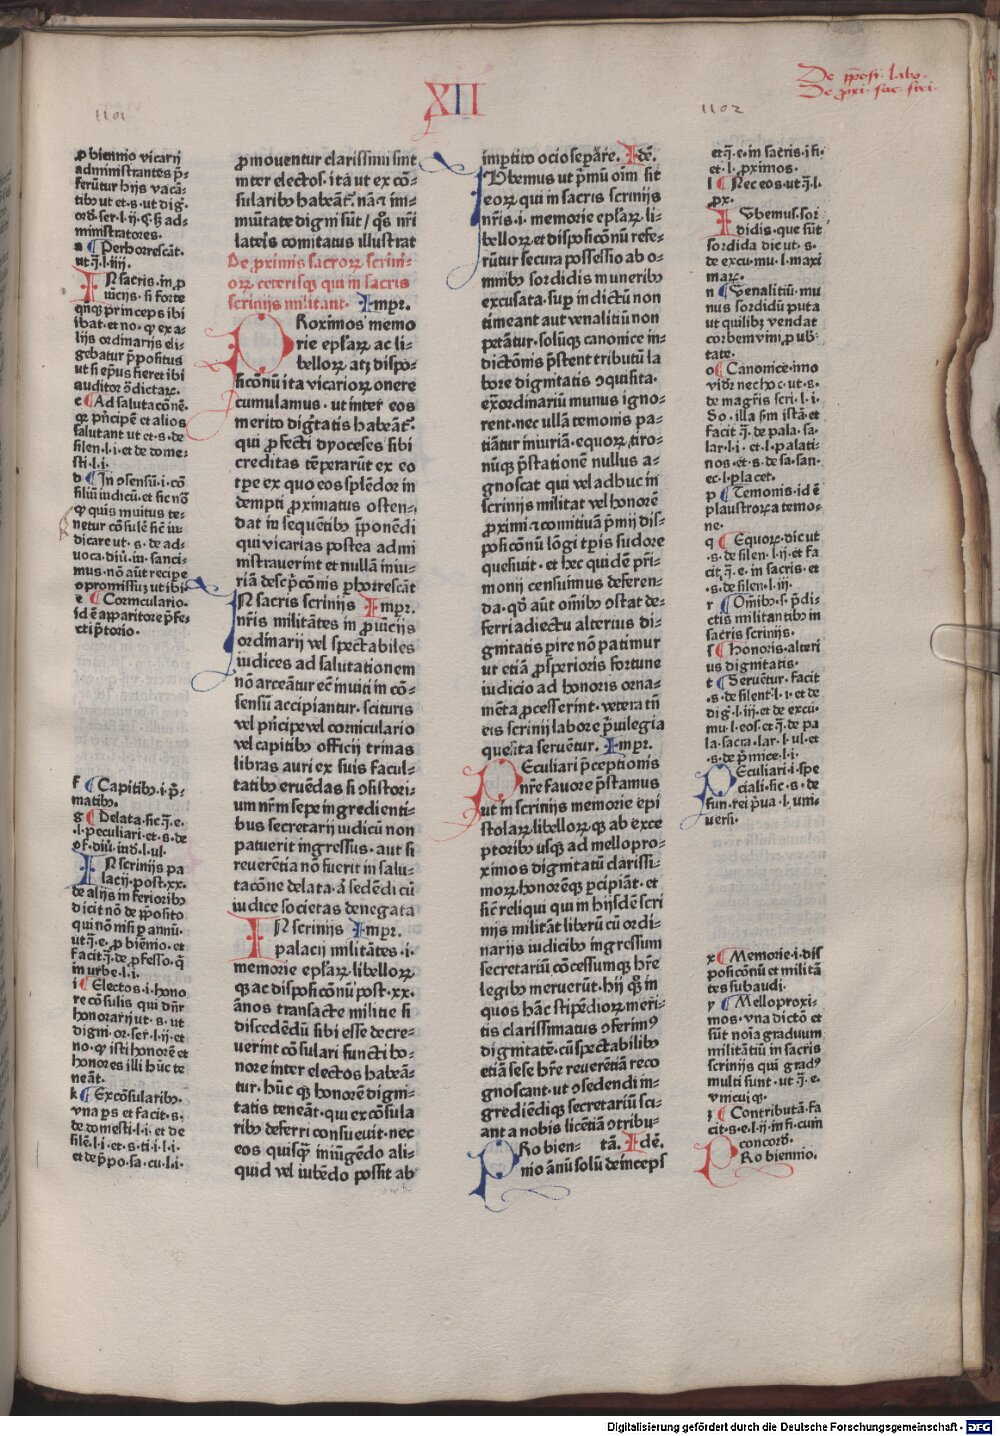 De p̄posi. labo.
De p̄xi. sac. scri.
XII
1101
1102
ꝓ biennio vicarij
administrantes p̄-
ferūtur hijs vacā-
mīnistratores.
a ¶ Perhorrescāt.
ut q̄.l.iiij.
IN sacris.in p
uīcijs. si forte
qn̄qꝫ princeps ibi
lijs ordinarijs eli-
gebatur p̄positus
ut si ep̄us fieret ibi
c ¶ Ad salutacōnē.
qꝛ pn̄cipē et alios
salutant ut et.s.de
silen.l.i.et de dome-
sti.l.i.
d ¶ In ↄsensū.i.cō
filiū iudicū.et sic nō
ꝙ quis inuitus te-
netur cōsulē sic iu-
dicare ut.s.de ad-
uoca.diū.iu.sanci-
mus.nō aūt recipe
e ¶ Corniculario.
id ē apparitore p̄fe-
cti p̄torio.
f ¶ Capitibꝫ.i.p̄-
matibꝫ.
g ¶ Delata.sic q̄.e.
.l.peculiari.et.s.de
of.diū.iud.l.ul.
IN scrinijs pa
lacij.post.xx.
de alijs inferioribꝫ
dicit nō de p̄posito
qui nō nisi ꝑ annū.
ut q̄.e.ꝓ biēnio.et
facit q̄.de ꝓfesso.q̄
in urbe.l.i.
i ¶ Electos.i.hono
re cōsulis qui dn̄r
honorarij ut.s.ut
digni.or.ser.l.ij.et
no.ꝙ isti honorē et
honores illi hūc te
neāt.
k ¶ Excōsularibꝫ.
vna ꝑs et facit.s.
de domesti.l.i.et de
silē.l.i.et.s.ti.i.l.i.
et de p̄po.sa.cu.l.i.
ꝓmouentur clarissimi sint
inter electos.ita ut ex cō-
sularibꝫ habeāt᷑.nā ⁊ im-
mūtate digni sūt / qꝫs nr̄i
lateris comitatus illustrat
De proximis sacroꝝ scrini-
oꝝ ceterisqꝫ qui in sacris
scrinijs militant. Impr.
PRoximos memo
rie epl̄aꝝ ac li-
belloꝝ atqꝫ dispo-
sicōnū ita vicarioꝝ onere
cumulamus.ut inter eos
merito dig̃tatis habeāt᷑.
qui ꝓfecti dyoceses sibi
creditas tēperarūt ex eo
tꝑe ex quo eos splēdor in
dempti ꝓximatus osten-
dat in sequētibꝫ p̄ponēdi
qui vicarias postea admi
nistrauerint et nullā iniu-
riā descp̄cōnis ꝑhorrescāt
IN sacris scrinijs Impr.
nr̄is militātes in ꝓuīcijs
ordinarij vel spectabiles
iudices ad salutationem
nō arceātur ec̄ inuiti in cō-
sensū accipiantur.scituris
vel pn̄cipe vel corniculario
vel capitibꝫ officij trinas
libras auri ex suis facul-
tatibꝫ eruēdas si ↄsistori-
um nr̄m sepe ingredienti-
bus secretarij iudicū non
patuerit ingressus.aut si
reuerētia nō fuerit in salu-
tacōne delata.a sedēdi cū
iudice societas denegata
IN scrinijs Impr.
palacij militātes.i.
memorie epl̄aꝝ libelloꝝ
qꝫ ac disposicōnū post.xx.
ānos transacte militie si
discedēdū sibi esse decre-
uerint cōsulari functi ho-
nore inter electos habeā-
tur.hūc qꝫ honorē digni-
tatis teneāt.qui excōsula
ribꝫ deferri consueuit.nec
eos quisqꝫ iniūgēdo ali-
quid vel iubēdo possit ab
impetito ocio sepāre. Idē.
IVbemus ut p̄mū oīm sit
eoꝝ qui in sacris scrinijs
nr̄is.i.memorie epl̄aꝝ li-
belloꝝ et disposicōnū refe-
rūtur secura possessio ab o-
mnibꝫ sordidis muneribꝫ
excusata.suꝑ indictū non
timeant aut venalitiū non
petātur.solūqꝫ canonice in-
dictōnis p̄stent tributū la
bore dignitatis ↄquisita.
ex̄ordinariū munus igno-
rent.nec ullā temonis pa-
tiātur iniuriā.equoꝝ,tiro-
nūqꝫ p̄stationē nullus a-
gnoscat qui vel adhuc in
scrinijs militat vel honorē
ꝓximi ⁊ comitiuā p̄mij dis-
posicōnū lōgi tꝑis sudore
quesiuit.et hec quidē pr̄i-
monij censuimus deferen-
da.qd̄ aūt oīnibꝫ ↄstat de-
ferri adiectu alterius di-
gnitatis ꝑire nō patimur
ut etiā ꝓsperioris fortune
iudicio ad honoris orna-
mēta ꝓcesserint.vetera tn̄
eis scrinij labore p̄uilegia
quesita seruētur. Impr.
PEculiari p̄ceptionis
nr̄e fauore p̄stamus
ut in scrinijs memorie epi
stolaꝝ libelloꝝ qꝫ ab exce
ptoribꝫ usqꝫ ad mellopro-
ximos dignitatū clarissi-
moꝝ honorēqꝫ ꝑcipiāt.et
sic̄ reliqui qui in hijsdē scri
nijs militāt liberū cū ordi-
narijs iudicibꝫ ingressum
secretariū cōcessumqꝫ hr̄e
legibꝫ meruerūt.hij qꝫs in
quos hāc stipēdioꝝ meri-
tis clarissimatus ↄferimꝰ
dignitatē.cū spectabilibꝫ
etiā sese hr̄e reuerētiā reco
gnoscant.ut ↄsedendi in-
grediēdiqꝫ secretariū sci-
ant a nobis licētiā ↄtribu-
PRo bien- tā. Idē.
nio ānū solū deinceps
et q̄.e.in sacris.i fi.
et.l.ꝓximos.
l ¶ Nec eos.ut q̄.l.
ꝓx.
IVbemus.sor
didis.que sūt
sordida dic ut.s.
de excu.mu.l.maxi
marꝝ.
n ¶ Venalitiū.mu
nus sordidū puta
ut quilibꝫ vendat
corbem vini ꝓ ub̄-
tate.
o ¶ Canonice.immo
vid̄r nec hoc.ut.s.
de magr̄is scri.l.i.
So.illa sm̄ istā.et
facit q̄.de pala.sa.
lar.l.i.et.l.palati-
nos.et.s.de sa.san.
ec.l.placet.
p ¶ Temonis.id ē
plaustroꝝ a temo-
ne.
q ¶ Equoꝝ.dic ut
.s.de silen.l.ij.et fa
cit q̄.e.in sacris.et
.s.de silen.l.iij.
r ¶ Oīnibꝫ.s.p̄di-
ctis militantibꝫ in
sacris scrinijs.
s ¶ Honoris.alteri
us dignitatis.
t ¶ Seruētur.facit
.s.de silent.l.i.et de
dig.l.iij.et de excu.
mu.l.eos.et q̄.de pa
la.sacra.lar.l.ul.et
.s.de p̄mice.l.i.
PEculiari.i.spe
ciali.sic.s.de
fun.rei p̄ua.l.uni-
uersi.
x ¶ Memorie.i.dis
posicōnū et militā
tes subaudi.
y ¶ Melloproxi-
mos.vna dictō et
sūt noīa graduum
militātiū in sacris
scrinijs qui gradꝰ
multi sunt.ut q̄.e.
vnicuiqꝫ.
z ¶ Contributā.fa
cit.s.e.l.ij.in fi.cum
concord̄.
PRo biennio.
Digitalisierung gefördert durch die Deutsche Forschungsgemeinschaft - DFG